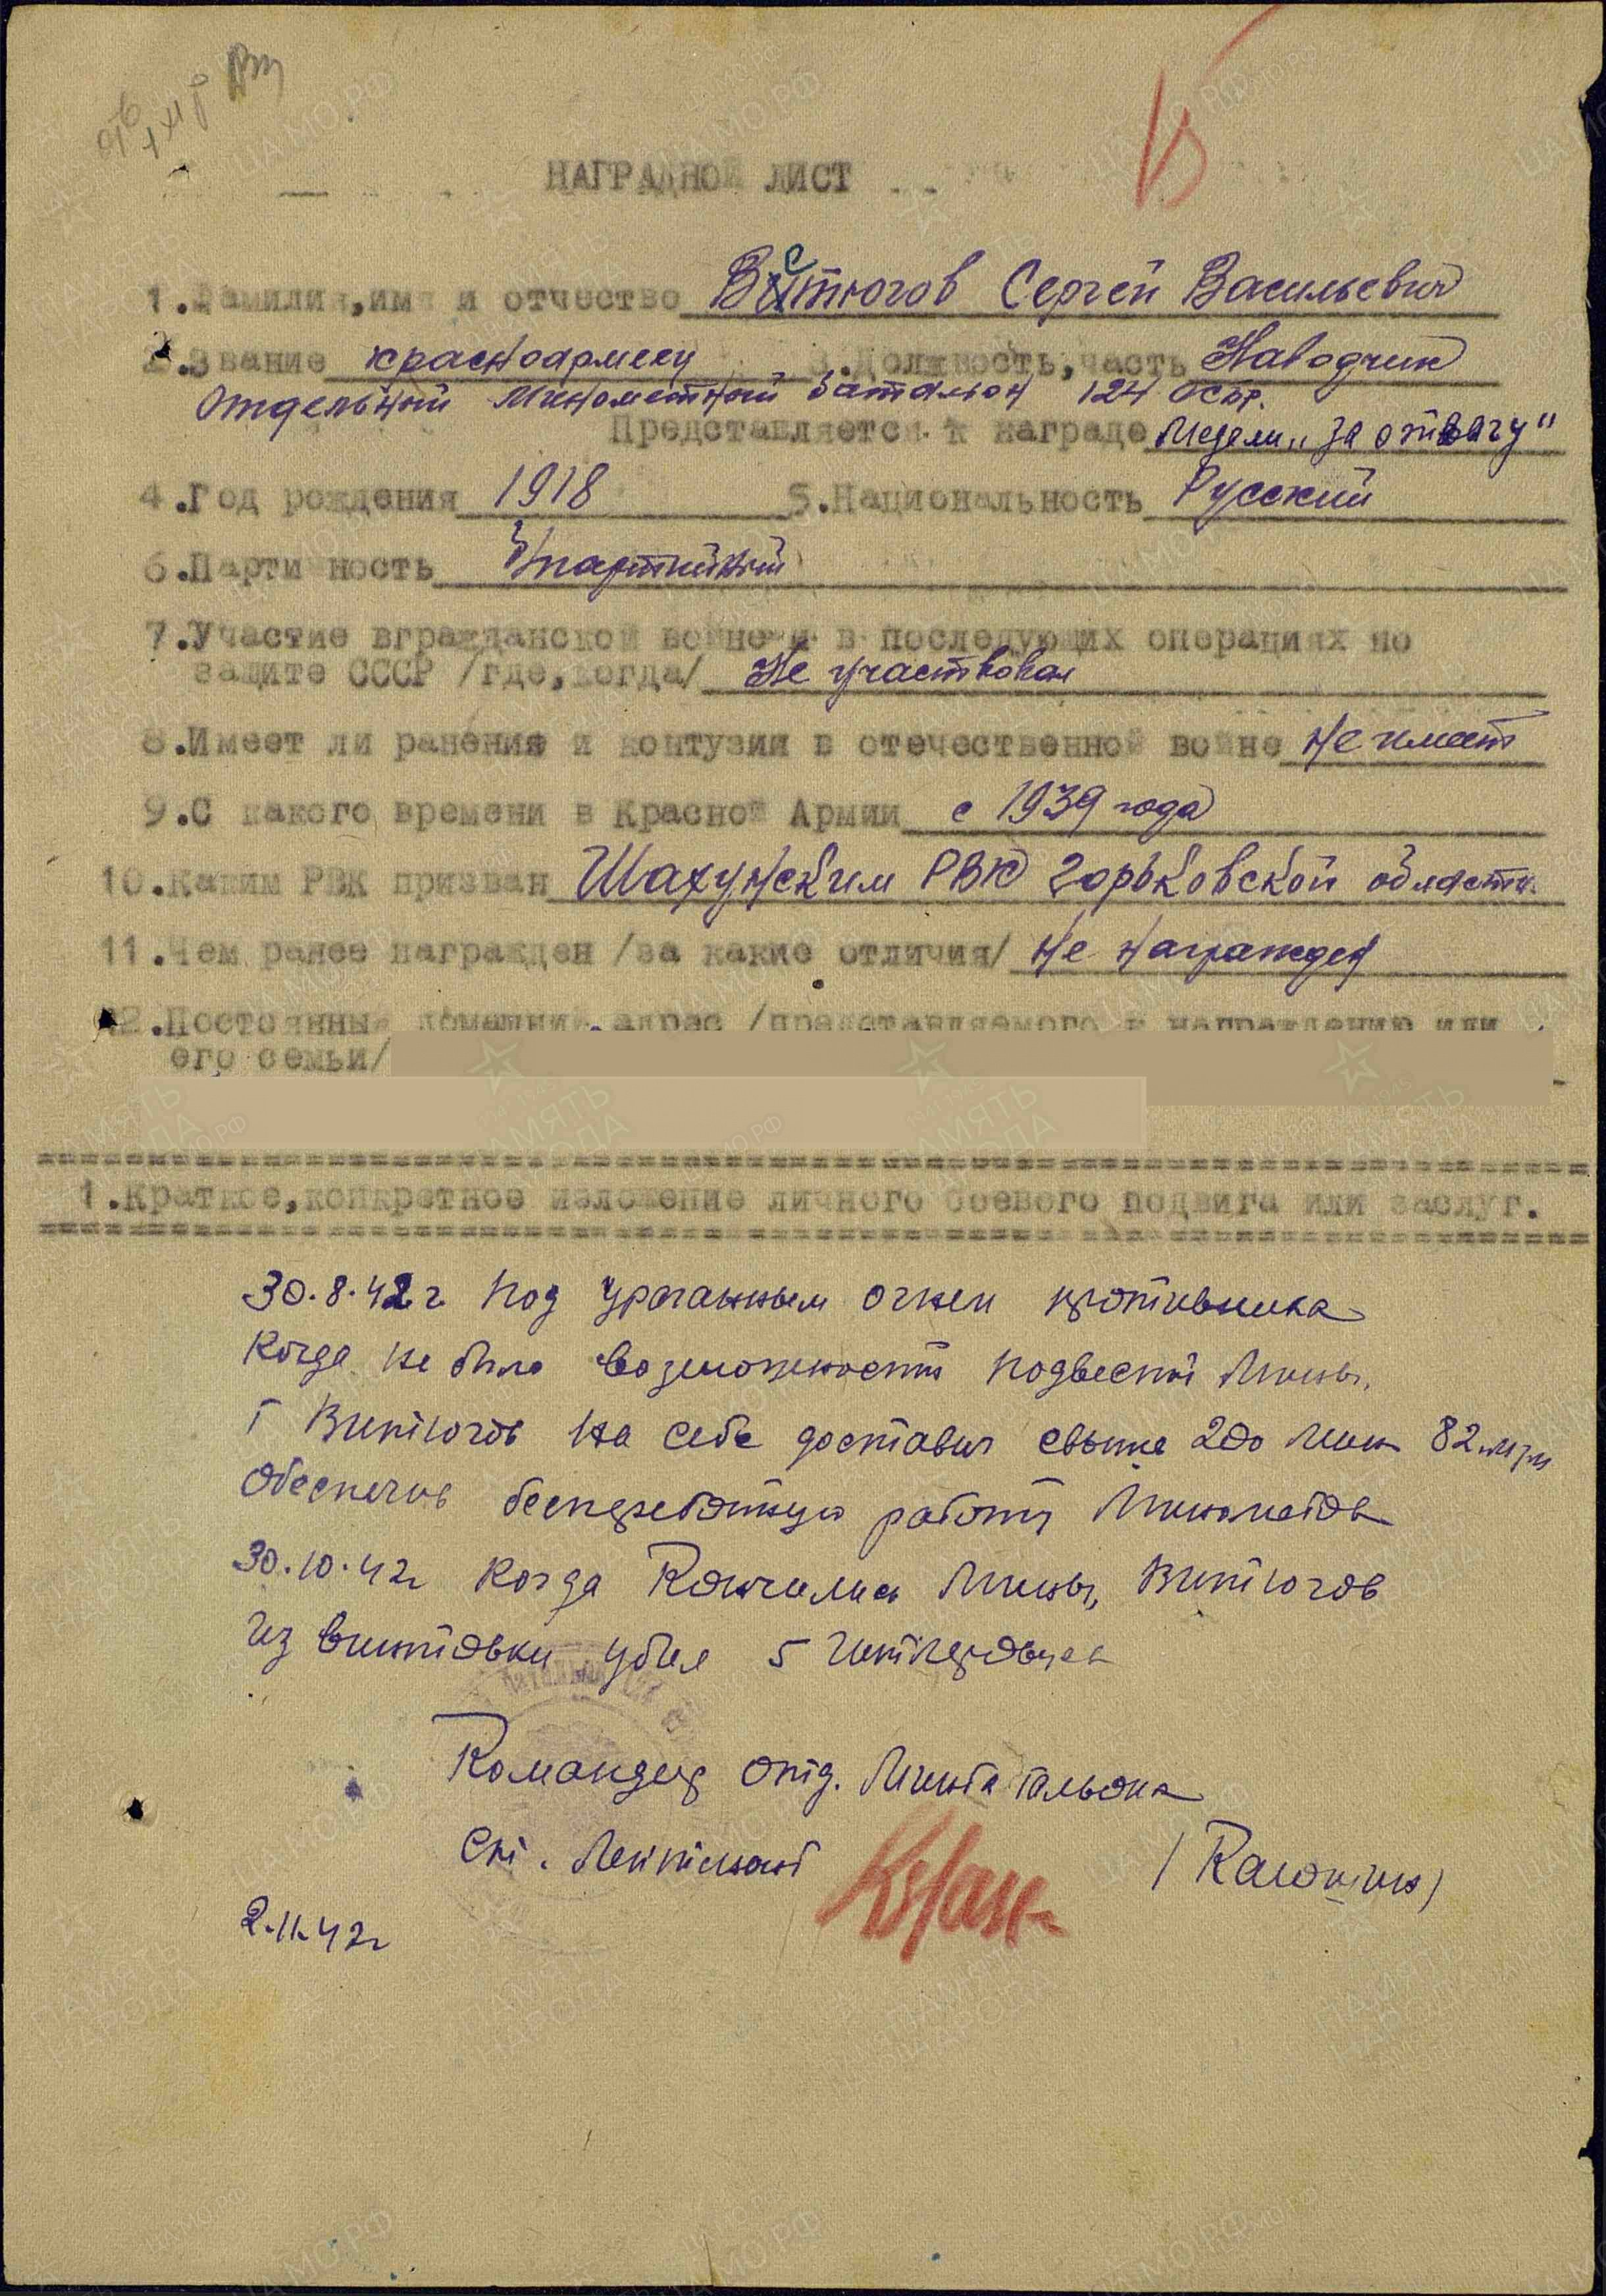 НАГРАДНОЙ ЛИСТ
1.Фамилия,имя и отчество Витюгов Сергей Васильевич
2.Звание красноармеец 3.Должность,часть Наводчик
Отдельный Минометный батальон 124 осбр.
Представляется к награде Медали „За отвагу"
4.Год рождения 1918 5.Национальность Русский
6.Парти ность б/партийный
7.Участие вгражданской войне и в последующих операциях по
защите СССР /где,когда/ Не участвовал
8.Имеет ли ранения и контузии в отечественной войне не имеет
9.С какого времени в Красной Армии с 1939 года
10.Каким РВК призван Шахунским РВК Горьковской области
11.Чем ранее награжден /за какие отличия/ не награжден
12.Постоянный домашний адрес /представляемого к награждению или
его семьи/
1.Краткое,конкретное изложение личного боевого подвига или заслуг.
30.8.42 г. Под ураганным огнем противника
Когда не было возможности подвести Мины,
т Витюгов на себе доставил свыше 200 мин 82 м/м
Обеспечив бесперебойную работу Минометов
30.10.42г Когда Кончились Мины, Витюгов
Из винтовки убил 5 гитлеровцев
Командир Отд. Минбатальона
Ст. Лейтенант (Калошин)
2.11.42г